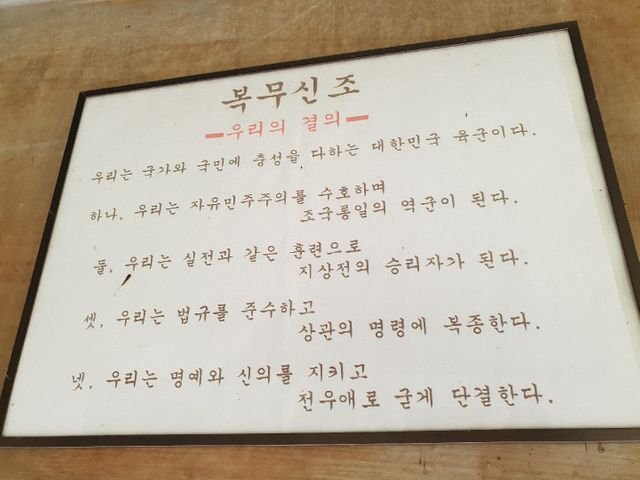 복무신조
우리의 결의
우리는 국가와 국민에 충성을 다하는 대한민국 육군이다.
하나, 우리는 자유민주주의를 수호하며
조국통일의 역군이 된다.
둘, 우리는 실전과 같은 훈련으로
지상전의 승리자가 된다.
셋, 우리는 법규를 준수하고
상관의 명령에 복종한다.
넷, 우리는 명예와 신의를 지키고
전우애로 굳게 단결한다.